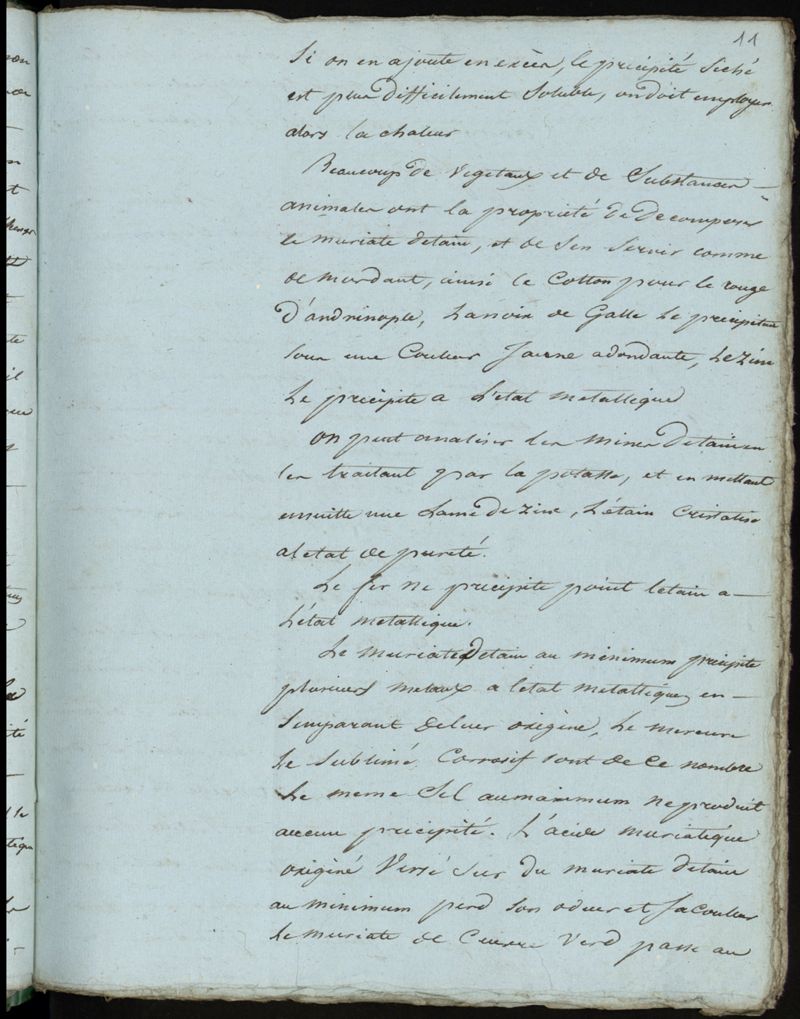 11
Si on en ajoute en excès, le precipité Seché
est plus difficilement Soluble, on doit employer
alors la chaleur
Beaucoup de vegetaux et de Substances
animales ont la propriété de Decomposer
le muriate detain, et de Sen Servir comme
de mordant, ainsi le Cotton pour le rouge
D'andrinople, La noix de Galle Le precipitent
sous une Couleur Jaune abondante, Le Zinc
Le precipite a L'etat metallique
on peut analiser les mines Detain en
les traitant par la potasse, et en mettant
ensuitte une Lame de Zinc, L'étain Cristalise
aletat de pureté.
Le fer ne precipite point letain a
L'état metallique.
Le muriate Detain au minimum precipite
plusieurs metaux a letat metallique, en
Semparant deleur oxigène, Le mercure
Le Sublimé Corrosif sont de Ce nombre
Le meme Sel aumaximum ne produit
aucun precipité. L'acide muriatique
oxigéné Versé Sur du muriate detain
au minimum perd Son odeur et Sa Couleur
Le muriate de Cuivre Verd passe au